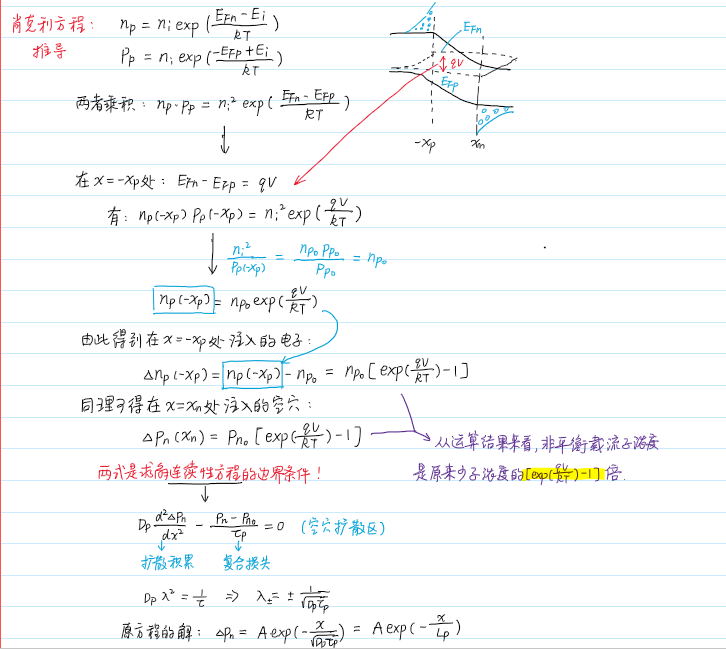 肖克利方程： n_p = n_i exp(\frac{E_{Fn} - E_i}{kT})
推导 P_p = n_i exp(\frac{-E_{Fp} + E_i}{kT})
E_{Fn}
qV
E_{Fp}
-x_p x_n
两者乘积： n_p · p_p = n_i^2 exp(\frac{E_{Fn} - E_{Fp}}{kT})
在 x = -x_p 处： E_{Fn} - E_{Fp} = qV
有： n_p(-x_p) P_p(-x_p) = n_i^2 exp(\frac{qV}{kT})
\frac{n_i^2}{P_p(-x_p)} = \frac{n_{p0} p_{p0}}{p_{p0}} = n_{p0}
n_p(-x_p) = n_{p0} exp(\frac{qV}{kT})
由此得到在 x = -x_p 处注入的电子：
Δn_p(-x_p) = n_p(-x_p) - n_{p0} = n_{p0} [exp(\frac{qV}{kT}) - 1]
同理可得在 x = x_n 处注入的空穴：
Δp_n(x_n) = p_{n0} [exp(\frac{qV}{kT}) - 1]
从运算结果来看，非平衡载流子浓度
是原来少子浓度的[exp(\frac{qV}{kT}) - 1] 倍.
两式是求解连续性方程的边界条件！
D_p \frac{d^2 Δp_n}{dx^2} - \frac{p_n - p_{n0}}{τ_p} = 0 （空穴扩散区）
扩散积累 复合损失
D_p λ^2 = \frac{1}{τ} => λ_± = ± \frac{1}{\sqrt{D_p τ_p}}
原方程的解： Δp_n = A exp(-\frac{x}{\sqrt{D_p τ_p}}) = A exp(-\frac{x}{L_p})